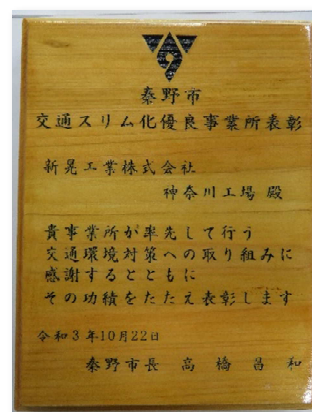 秦野市
交通スリム化優良事業所表彰
新晃工業株式会社
神奈川工場 殿
貴事業所が率先して行う
交通環境対策への取り組みに
感謝するとともに
その功績をたたえ表彰します
令和3年10月22日
秦野市長 高橋昌和